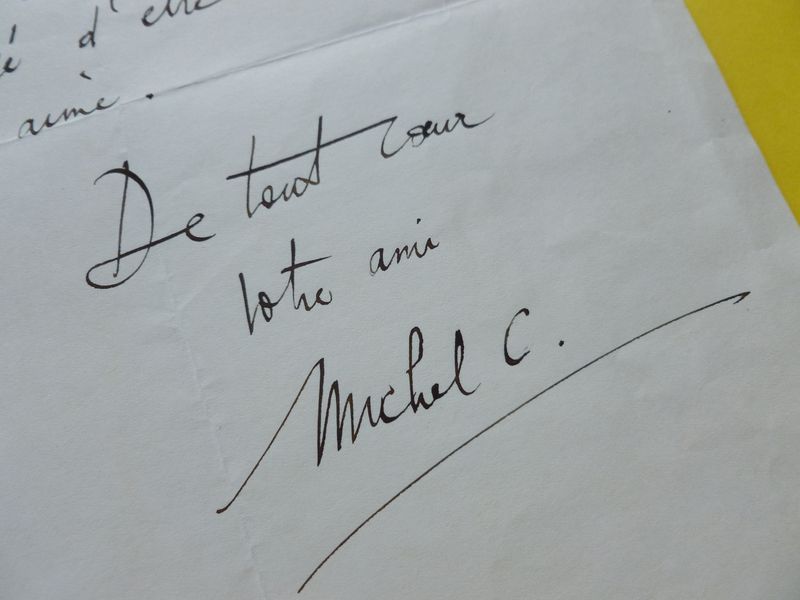 d'être
aimé.
De tout cœur
votre ami
Michel C.